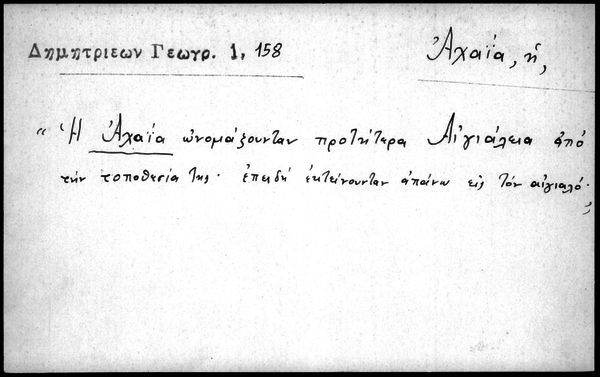 Δημητριεων Γεωγρ. 1, 158
Ἀχαΐα, ἡ,
“Ἡ Ἀχαΐα ὠνομάζουνταν προτήτερα Αἰγιάλεια ἀπό
τήν τοποθεσία της· ἐπειδή ἐκτείνουνταν ἀπάνω εἰς τόν αἰγιαλό·
”